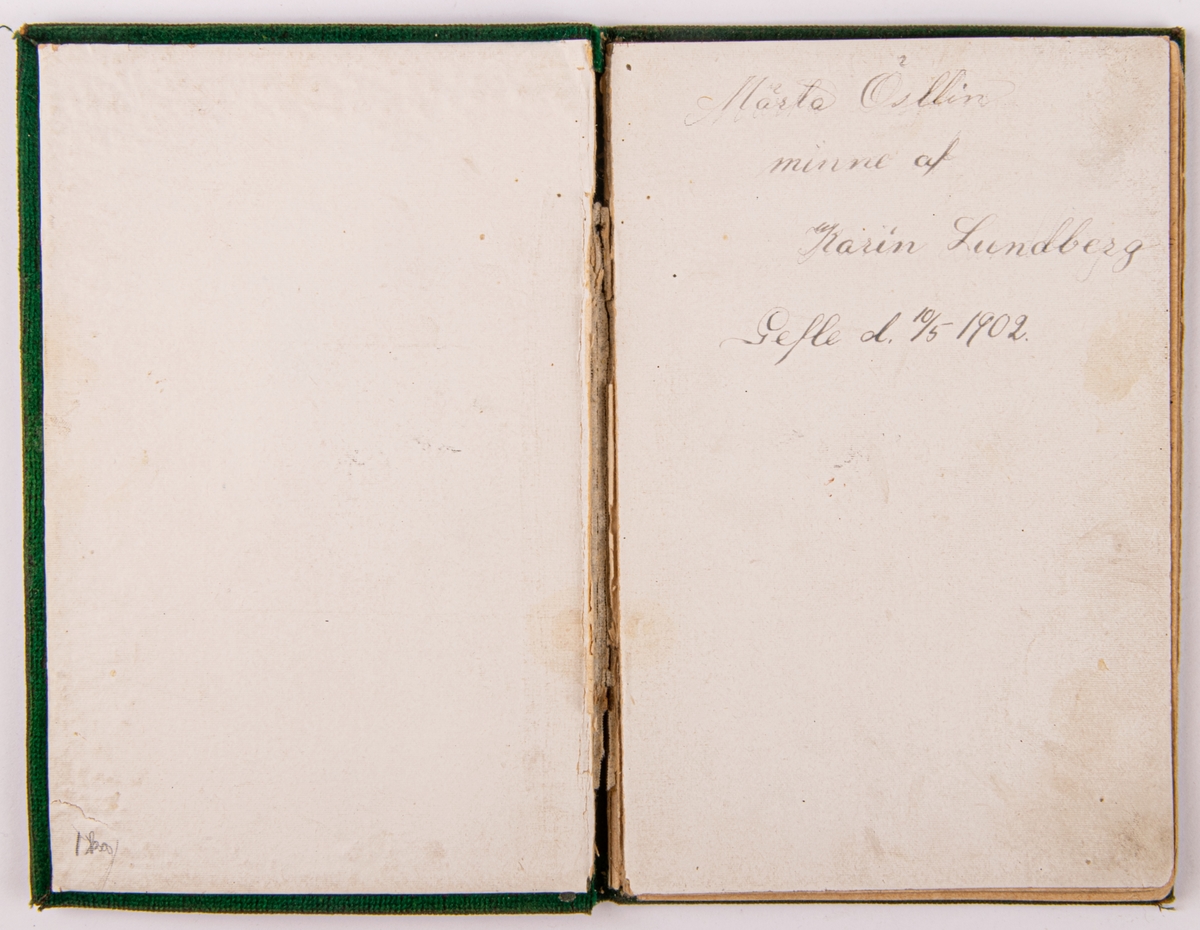 Märta Östlin
minne af
Karin Lundberg
Gefle d. 10/5 1902.